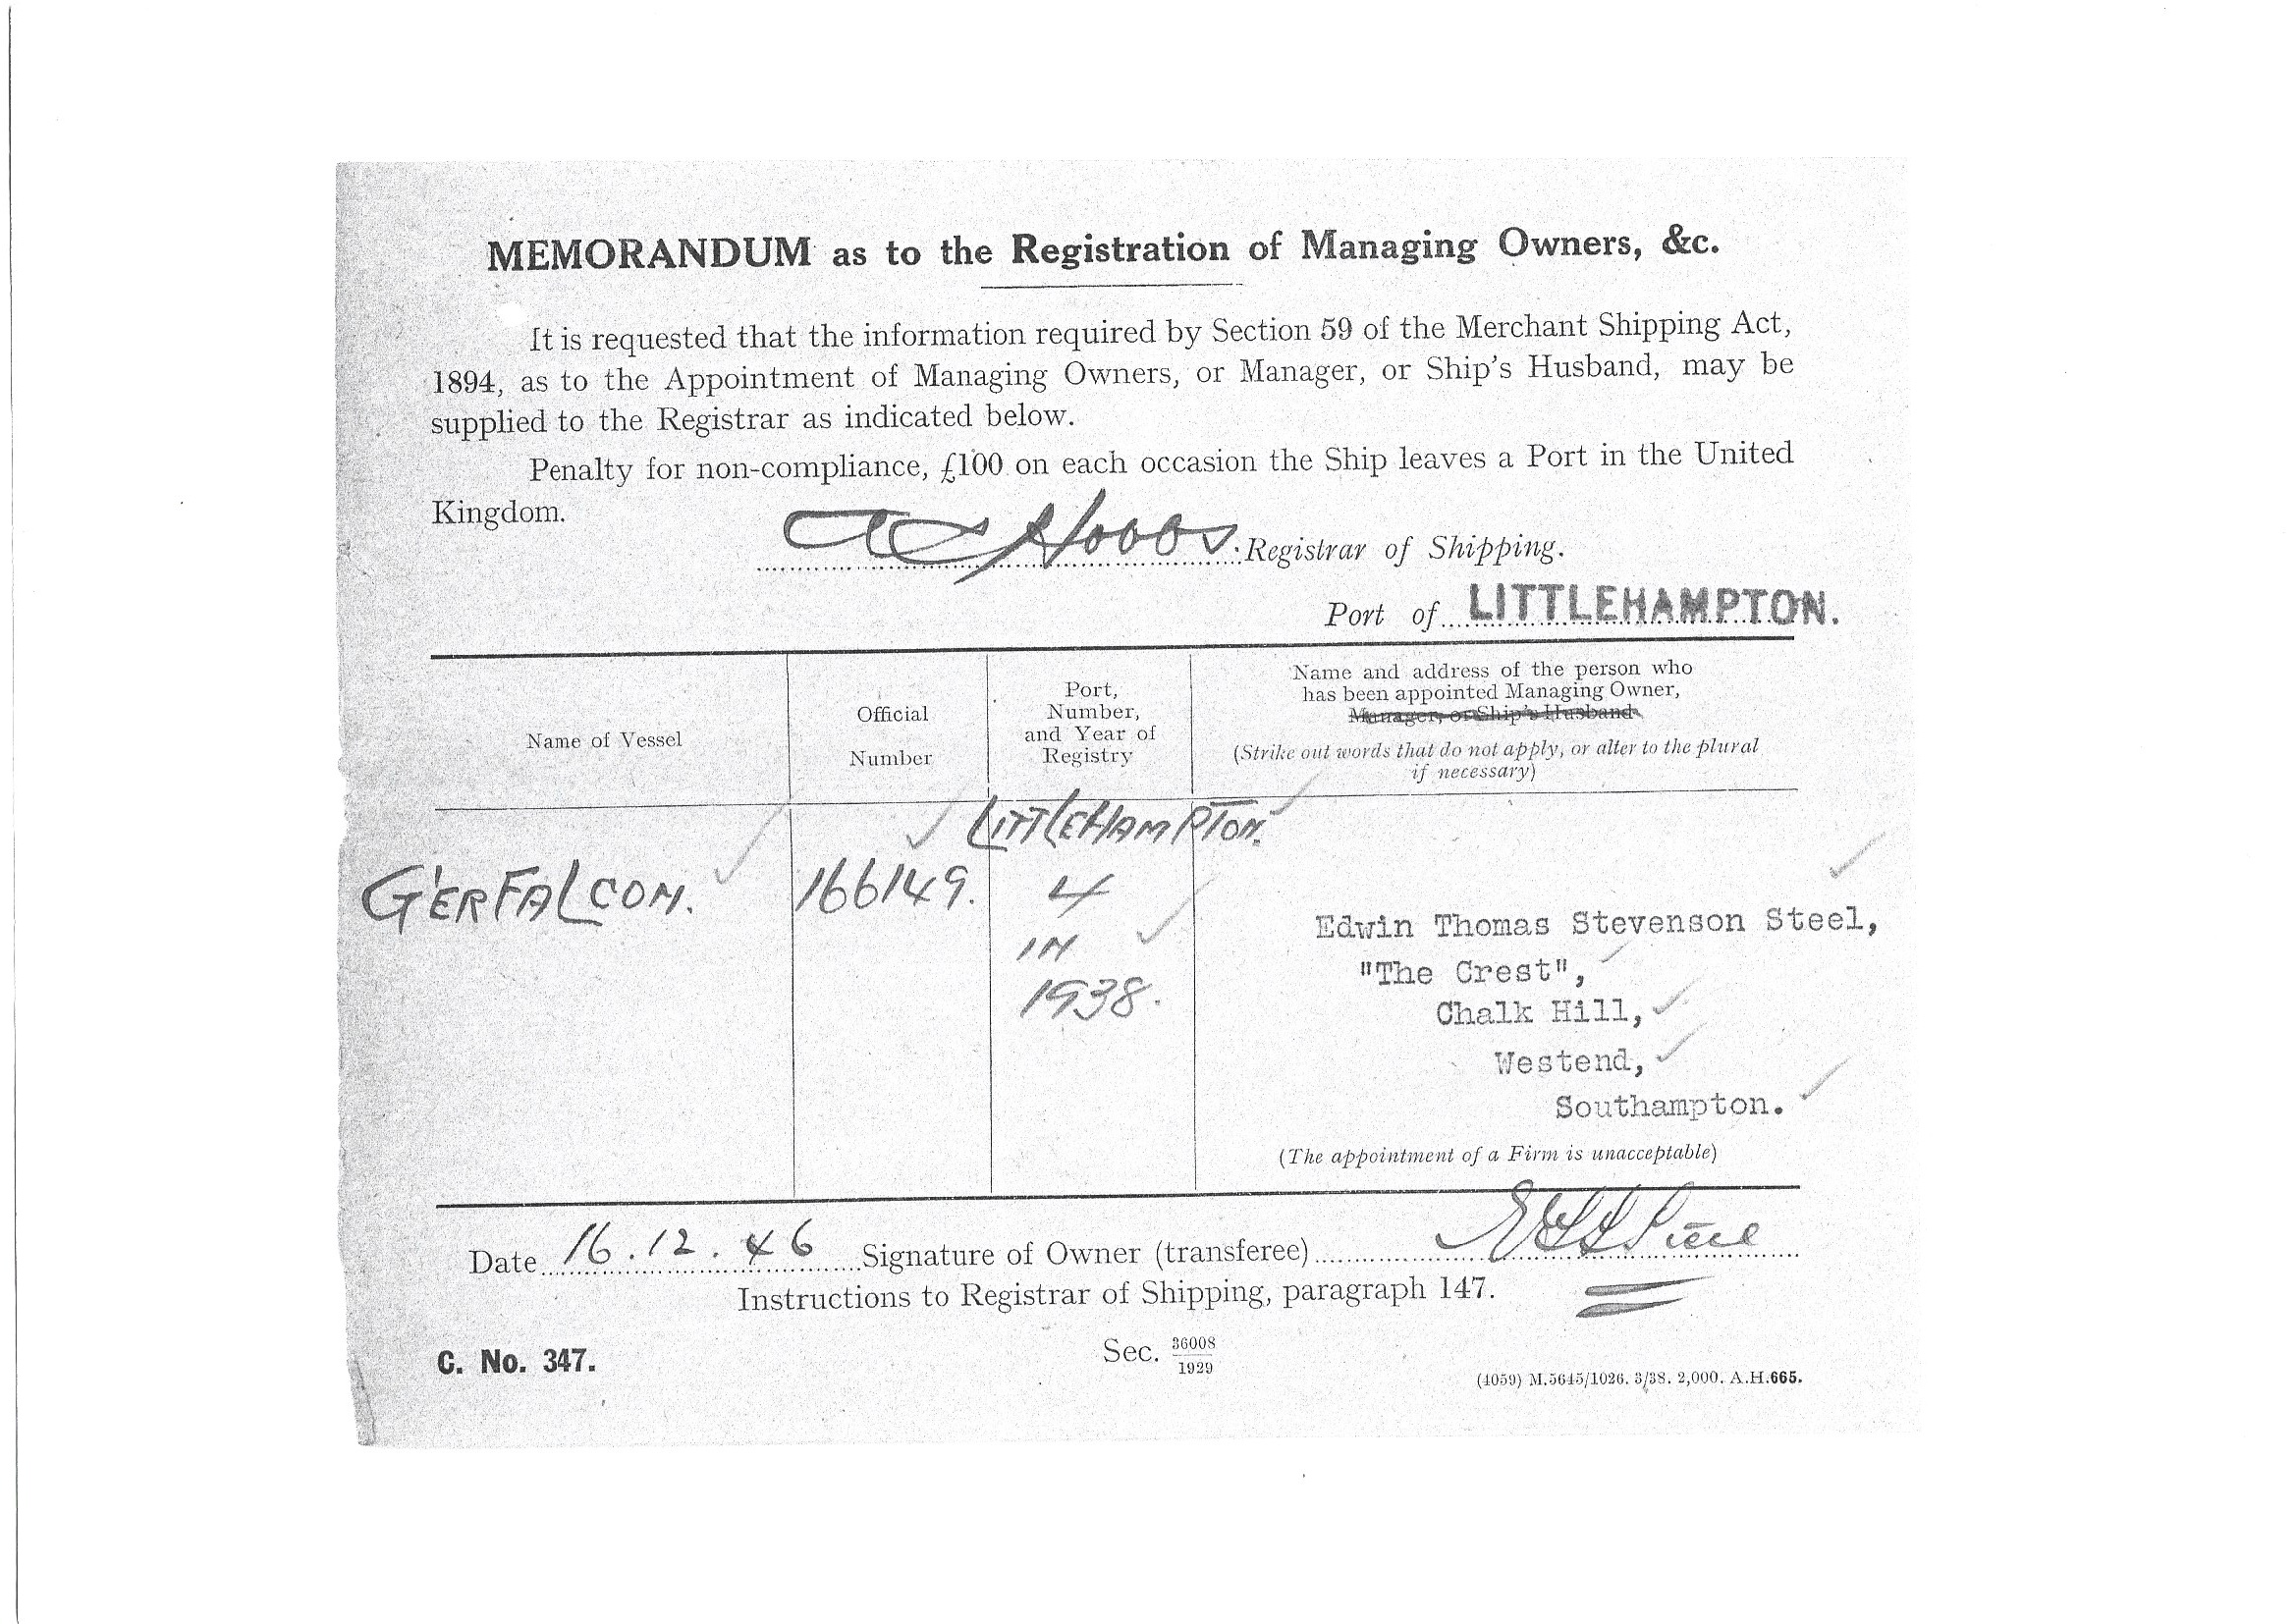 MEMORANDUM as to the Registration of Managing Owners, &c.
It is requested that the information required by Section 59 of the Merchant Shipping Act,
1894, as to the Appointment of Managing Owners, or Manager, or Ship's Husband, may be
supplied to the Registrar as indicated below.
Penalty for non-compliance, £100 on each occasion the Ship leaves a Port in the United
Kingdom.
Hobbs Registrar of Shipping.
Port of LITTLEHAMPTON.
Name of Vessel
Official
Number
Port,
Number,
and Year of
Registry
Name and address of the person who
has been appointed Managing Owner,
Manager, or Ship's Husband
(Strike out words that do not apply, or alter to the plural
if necessary)
G'ERFALCON.
166149.
LITTLEHAMPTON.
4
IN
1938.
Edwin Thomas Stevenson Steel,
"The Crest",
Chalk Hill,
Westend,
Southampton.
(The appointment of a Firm is unacceptable)
Date 16.12.46 Signature of Owner (transferee) Steel
Instructions to Registrar of Shipping, paragraph 147.
C. No. 347.
Sec. 36008
1929
(4059) M.5645/1026. 3/38. 2,000. A.H.665.